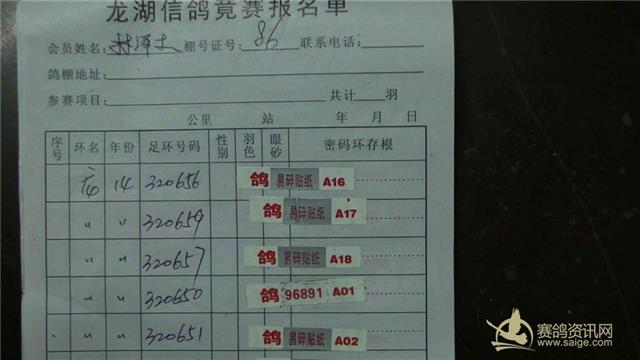 龙湖信鸽竞赛报名单
会员姓名: 林泽文 棚号证号: 86 联系电话:
鸽棚地址:
参赛项目: 共计 羽
公里 站 年 月 日
序号 环名 年份 足环号码 性别 羽色 眼砂 密码环存根
14 320656 鸽 易碎贴纸 A16
〃 〃 320659 鸽 易碎贴纸 A17
〃 〃 320657 鸽 易碎贴纸 A18
〃 〃 320650 鸽 96891 A01
〃 〃 320651 鸽 易碎贴纸 A02
赛鸽资讯网
www.saige.com